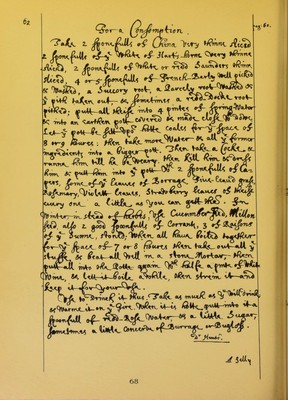 62
For a Consumption.
Take 2 sponefulls of China very thinne sliced
2 sponefulls of yᵉ white of Harts horne very thinne
sliced, 2 sponefulls of white or redd Saunders thinn
sliced, 4 or 5 sponefulls of French Barly well picked
& washed, a Succory root, a Parcely root washed &
yᵉ pith taken out, & sometimes a redd docke root
picked; putt all these into a pintes of Spring water
& into an earthen pott covered & made close
Lett yᵉ pott be sett upon hotte coales for yᵉ space of
8 or 9 houres; then take more water & all yᵉ former
ingredients, into a bigger pott. Then take a Cocke, &
runne him till he be weary, then kill him & dresse
him & putt him into yᵉ pott wᵗʰ 2 sponefulls of Ca-
pers, some of yᵉ leaves of Borage, five leaved grass
Rosemary, Violett leaves, Strawberry leaves of these
every one a little, as you can gett them. In
winter, in stead of herbes, use Cucumber seed, Mellon
seed, also 2 good sponefulls of Corrants, 3 of Raisons
of yᵉ Sunne, stoned. When all have boiled together
for yᵉ space of 7 or 8 houres then take out all yᵉ
stuffe & beat all well in a stone Mortar, then
putt all into the Potte again, wᵗʰ halfe a pinte of white
Wine, & lett it boile a while, then streine it and
keep it for your use.
Use to drinck it thus Take as much as yᵘ will drinck
& warme it on yᵉ fire, when it is hotte putt into it a
sponefull of redd Rose water, & a little Sugar,
sometimes a little Conserve of Burrage or Bugloss.
68